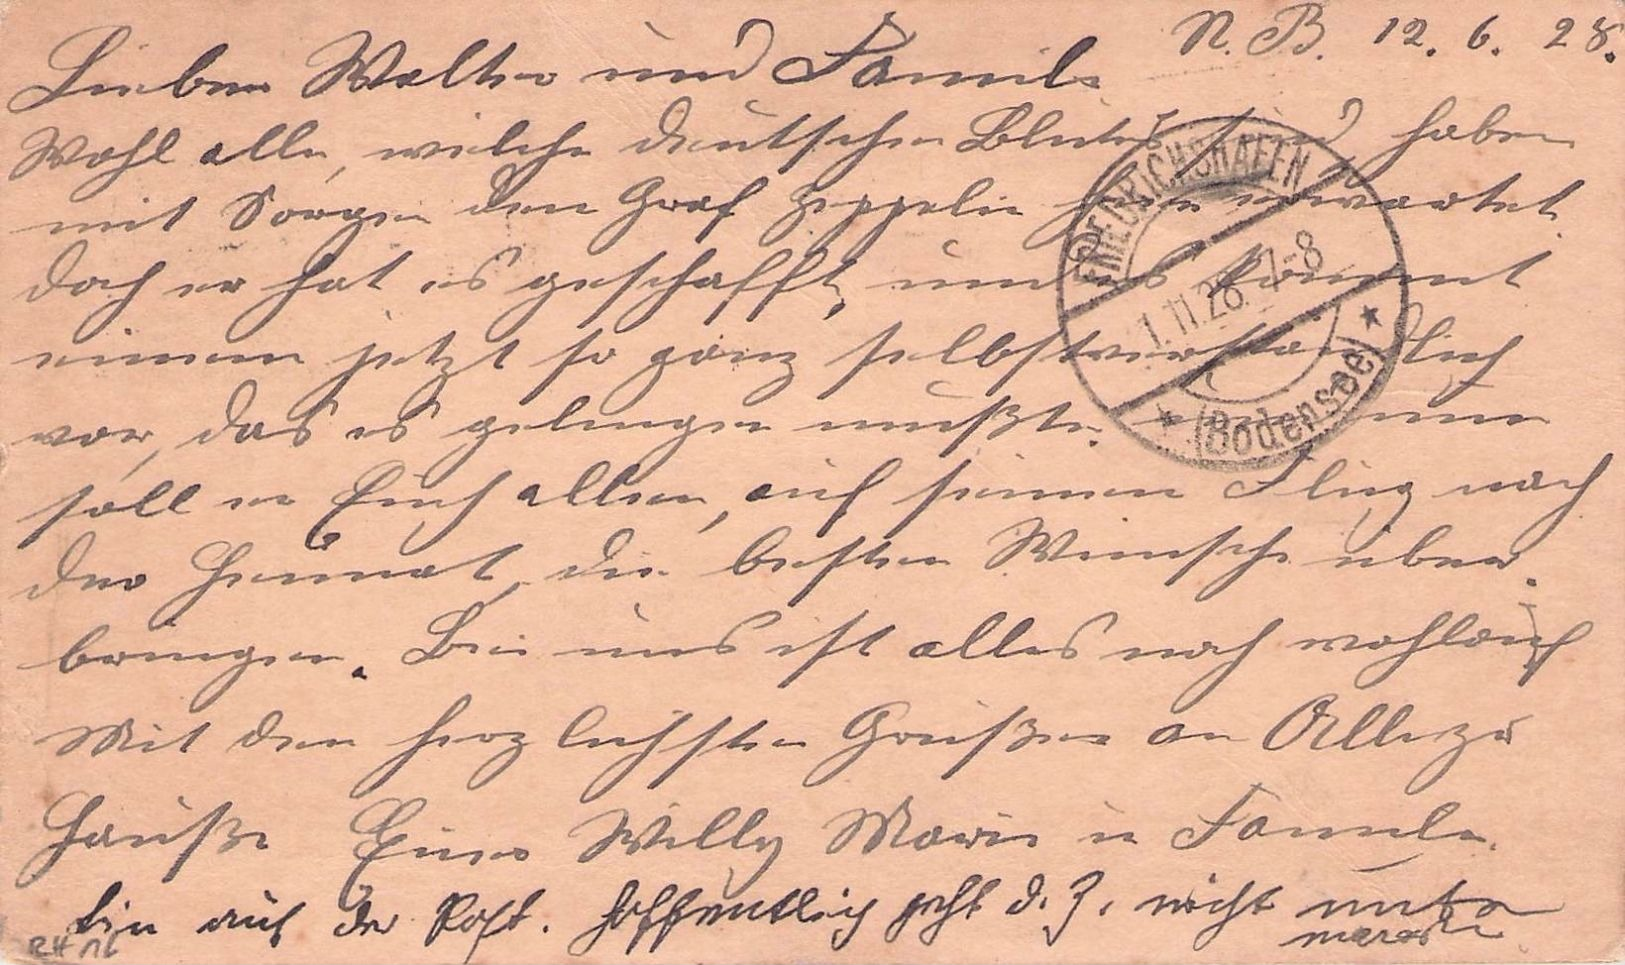 N. B. 12. 6. 28.
Lieber Walter und Famile
Wohl alle, welche deutschen Blutes sind haben
mit Sorgen den Graf Zeppelin hier erwartet.
doch er hat es geschafft, und es kommt
einem jetzt so ganz selbstverständlich
vor, das es gelingen mußte. nun
soll er Euch allen, auf seinem Flug nach
der Heimat, die besten Wünsche über.
bringen. Bei uns ist alles noch wohlauf
Mit den herzlichsten Grüßen an Alle zu
Hauße Eure Willy Marie u Familie.
bin auf der Post. hoffentlich geht d. Z. nicht unter
FRIEDRICHSHAFEN
1.11.28. 7-8
(Bodensee)
RH 16